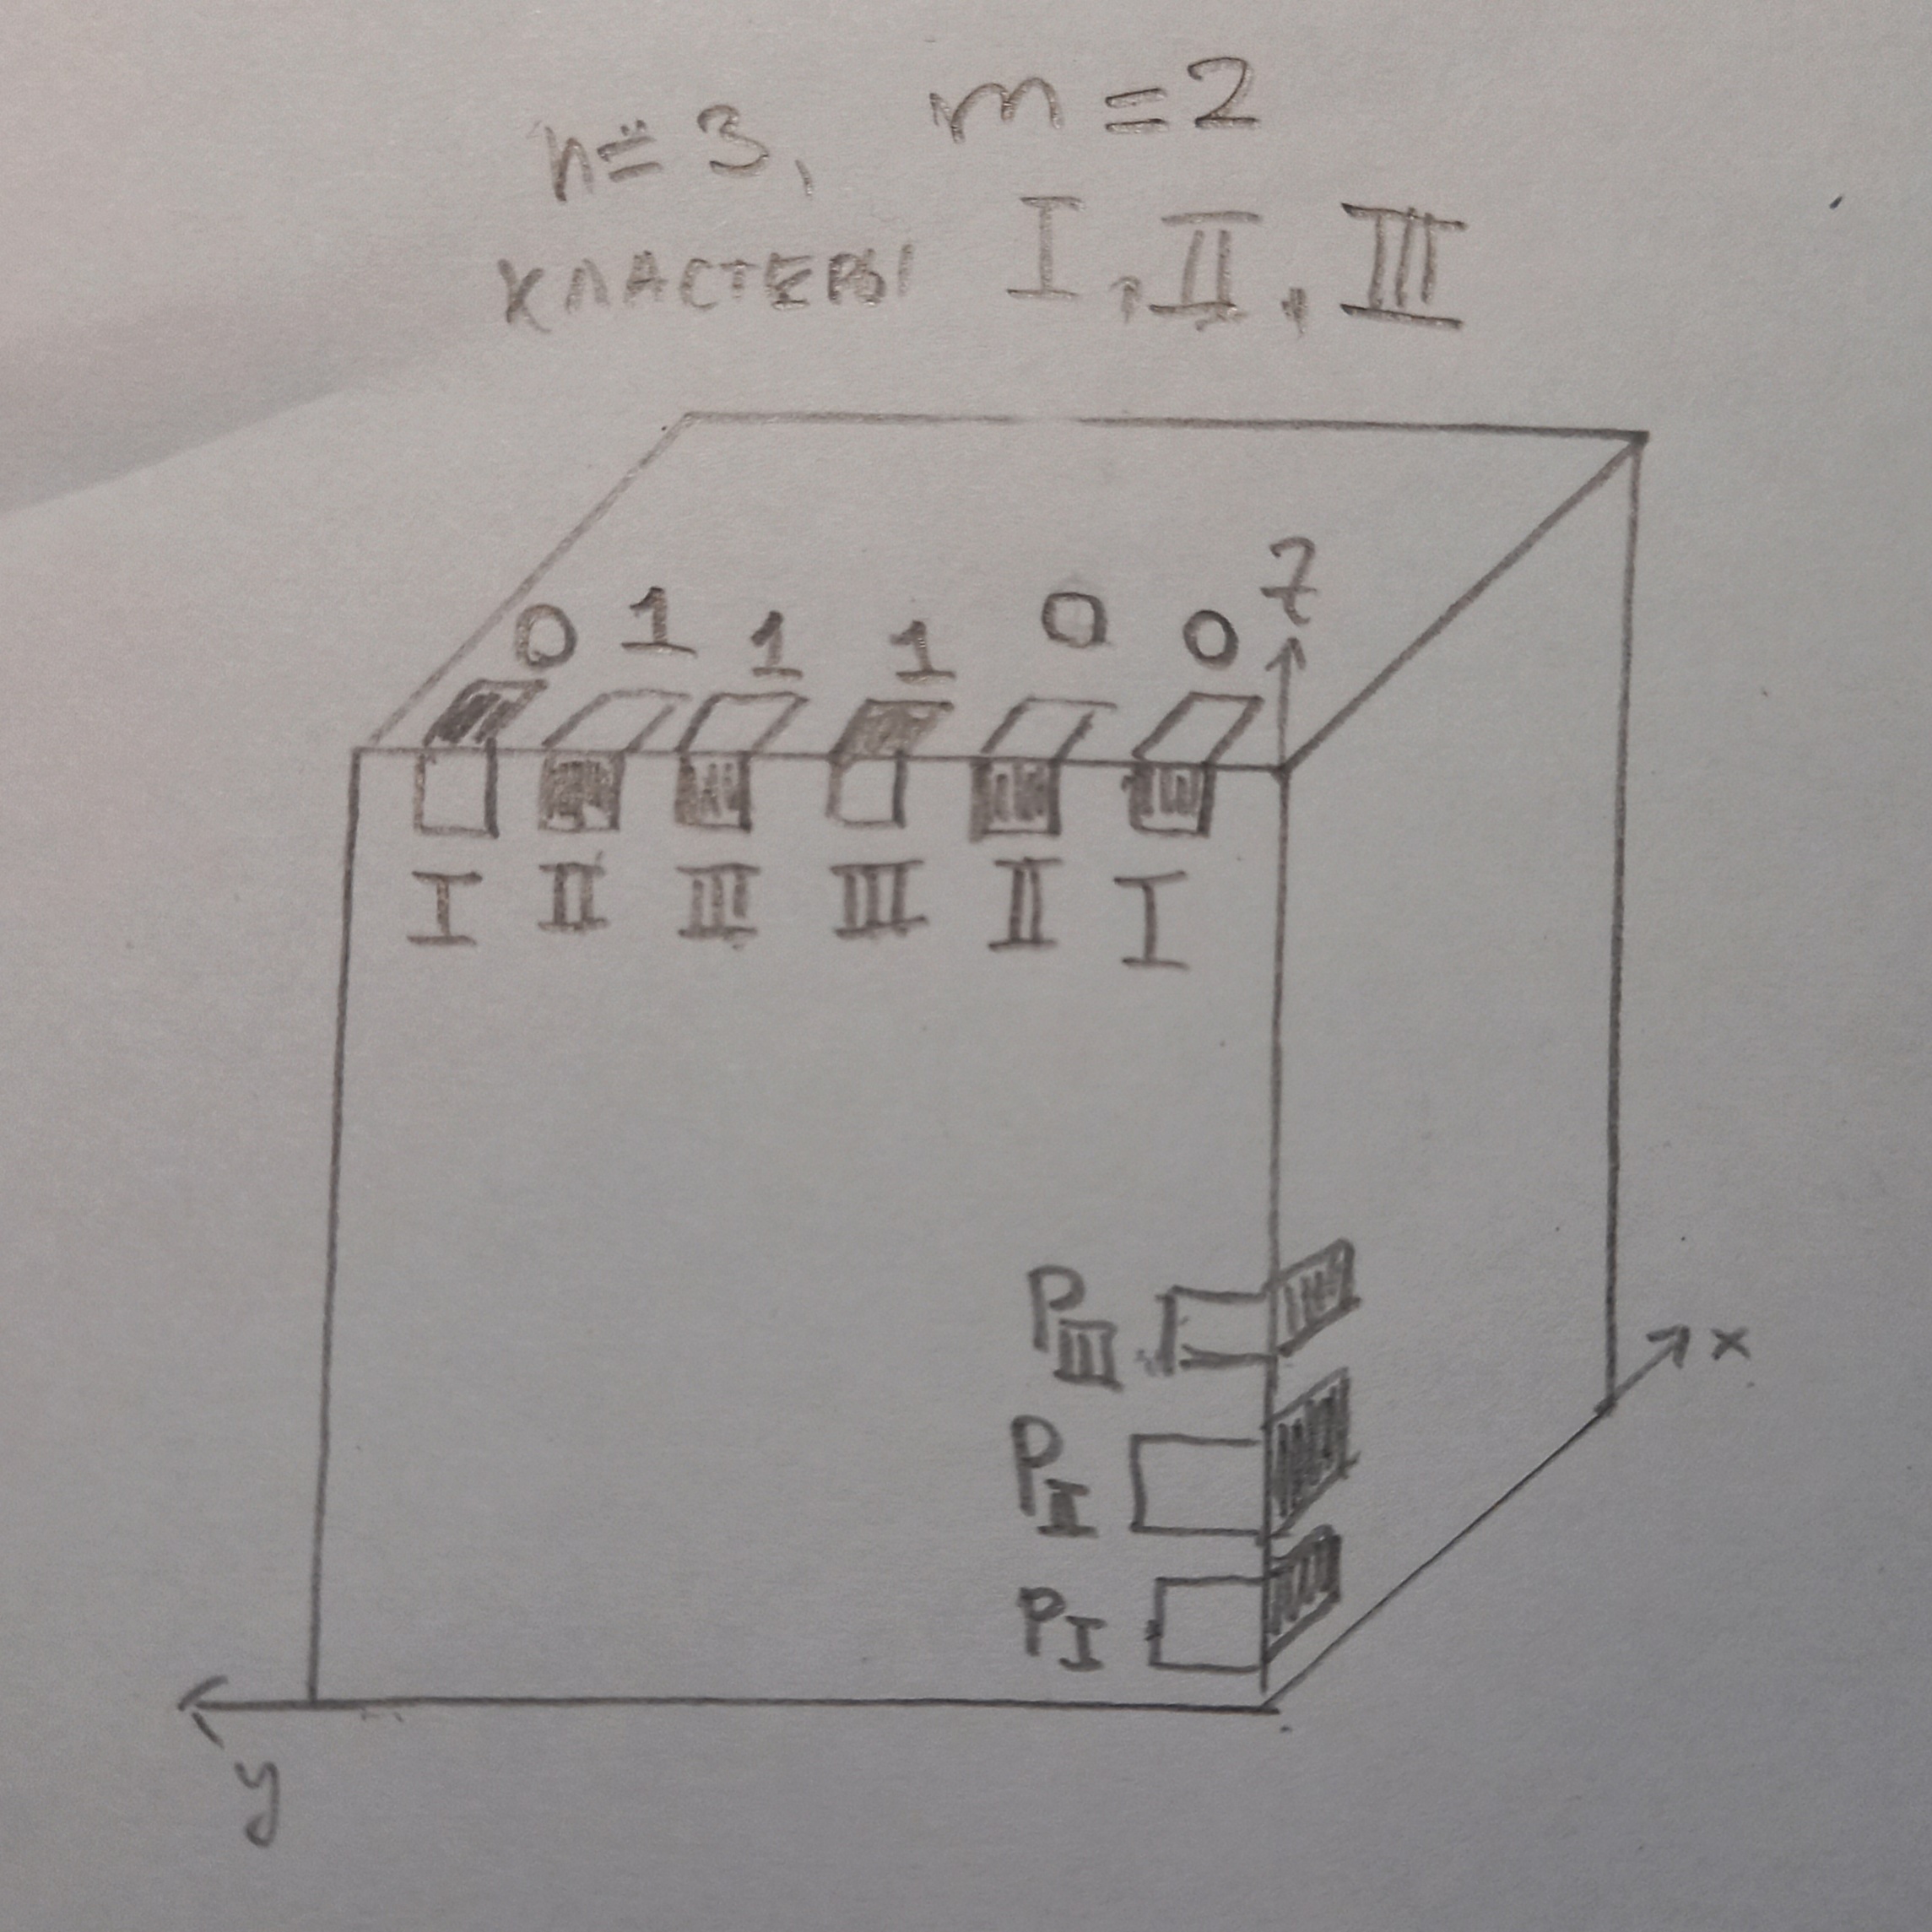 n = 3, m = 2
КЛАСТЕРЫ I, II, III
z
0 1 1 1 0 0
I II III III II I
P III
P II
x
P I
y